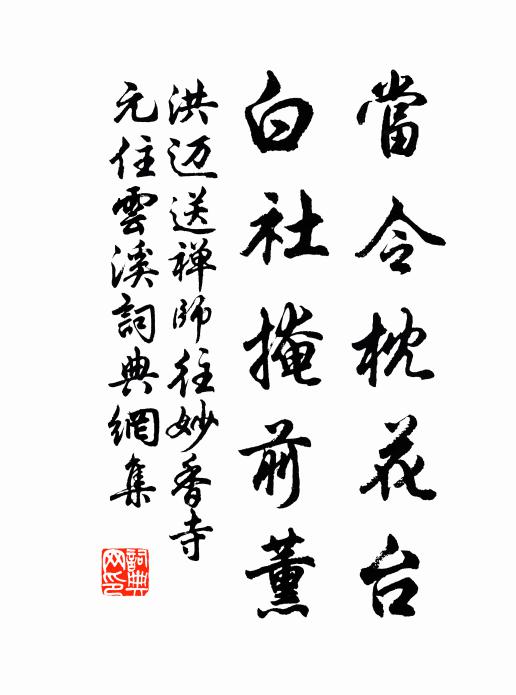 當令枕花台
白社掩前薰
洪迈送禅師往妙香寺
元住雲溪詞典網集
詞典網印